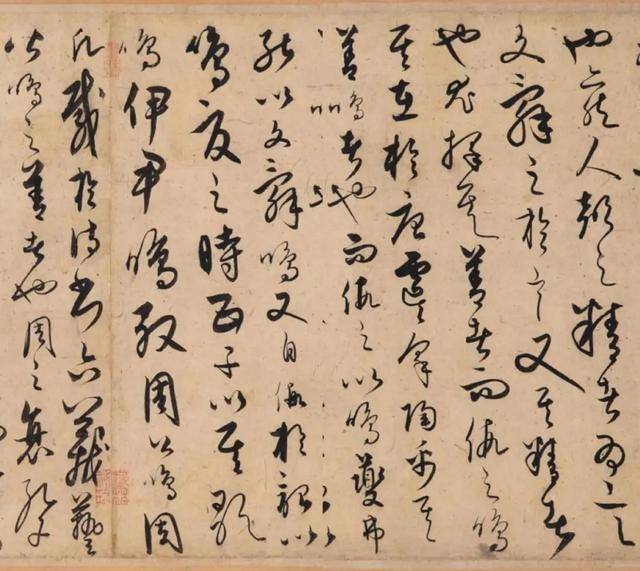 也亦然人聲之精者為言
文辭之於言又其精者
也尤擇其善者而假之鳴
其在於唐虞咎陶禹其
善鳴者也而假之以鳴夔弗
能以文辭鳴又自假於韶以
鳴夏之時五子以其歌
鳴伊尹鳴殷周公鳴周
凡載於詩書六義藝
皆鳴之善者也周之衰孔子